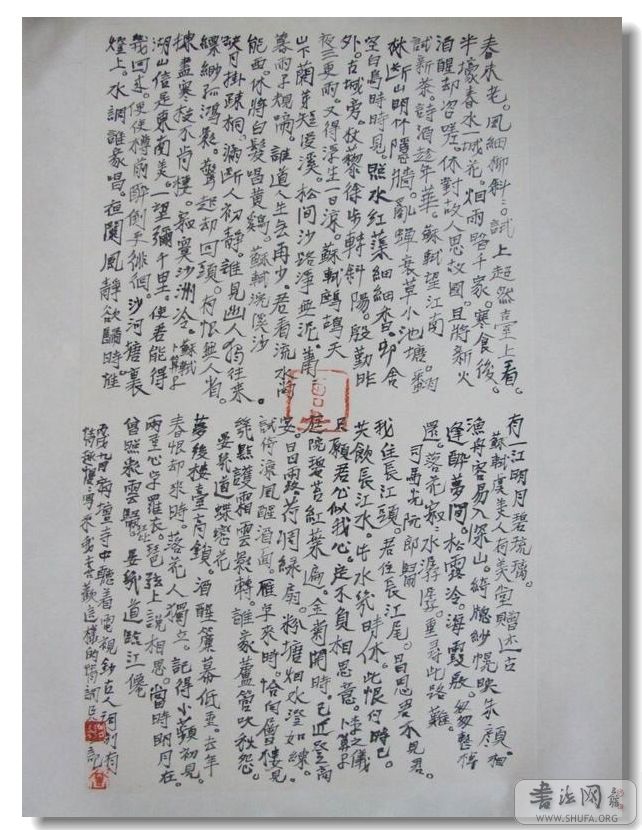 春未老。风細柳斜〻。試上超然臺上看。
半壕春水一城花。烟雨暗千家。寒食後。
酒醒却咨嗟。休對故人思故國。且將新火
試新茶。詩酒趁年華 蘇軾望江南
林断山明竹隱牆。亂蟬衰草小池塘。翻
空白鳥時時見。照水紅蕖細細香。邨舍
外。古城旁。杖藜徐步轉斜陽。殷勤昨
夜三更雨。又得浮生一日涼。蘇軾鷓鴣天
山下蘭芽短浸溪。松間沙路淨無泥。蕭〻
暮雨子規啼。誰道人生無再少。君看流水尚
能西。休將白髮唱黄鷄。蘇軾浣溪沙
缺月掛疎桐。漏断人初靜。誰見幽人獨往來。
縹緲孤鴻影。驚起却回頭。有恨無人省。
揀盡寒枝不肯棲。寂寞沙洲冷。蘇軾卜算子
湖山信是東南美。一望彌千里。使君能得
幾回來。便使樽前醉倒更徘徊。沙河塘裏
燈上。水調誰家唱。夜闌風靜欲歸時。惟
有一江明月碧琉璃。
蘇軾虞美人有美堂贈述古
漁舟容易入深山。綺牕紗幌映朱顔。相
逢醉夢間。松露冷。海霞殷。匆匆整棹
還。落花寂水潺潺。重尋此路難。
司馬光阮郎歸
我住長江頭。君住長江尾。日日思君不見君。
共飲長江水。此水幾時休。此恨何時已。
只願君心似我心。定不負相思意。李之儀卜算子
庭院碧苔紅葉遍。金菊開時。已近登高
宴。日日露荷凋緑扇。粉塘烟水澄如練。
試倚涼風醒酒面。雁字來時。恰向層樓見。
幾點護霜雲影轉。誰家蘆管吹秋怨。
晏幾道蝶戀花
夢後樓臺高鎖。酒醒簾幕低垂。去年
春恨却來時。落花人獨立。記得小蘋初見。
兩重心字羅衣。琵琶弦上說相思。當時明月在。
曾照彩雲歸。晏幾道臨江僊
丙戌九月壇寺中聽着電視鈔古人詞别有
情趣寫來我喜歡這樣的情調記
书法网
WWW.SHUFA.ORG